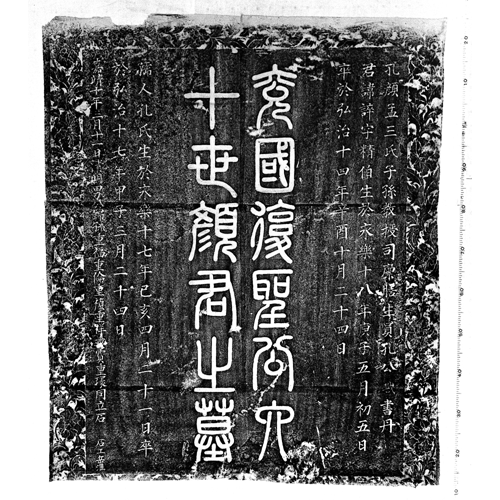 孔顏孟三氏子孫教授司廩膳生員孔公 書丹
君諱諄字精伯生於永樂十八年庚子五月初五日
卒於弘治十四年辛酉十月二十四日
兗國復聖公六
十世顏君之墓
孺人孔氏生於永樂十七年己亥四月二十一日卒
於弘治十七年甲子三月二十四日
同立石